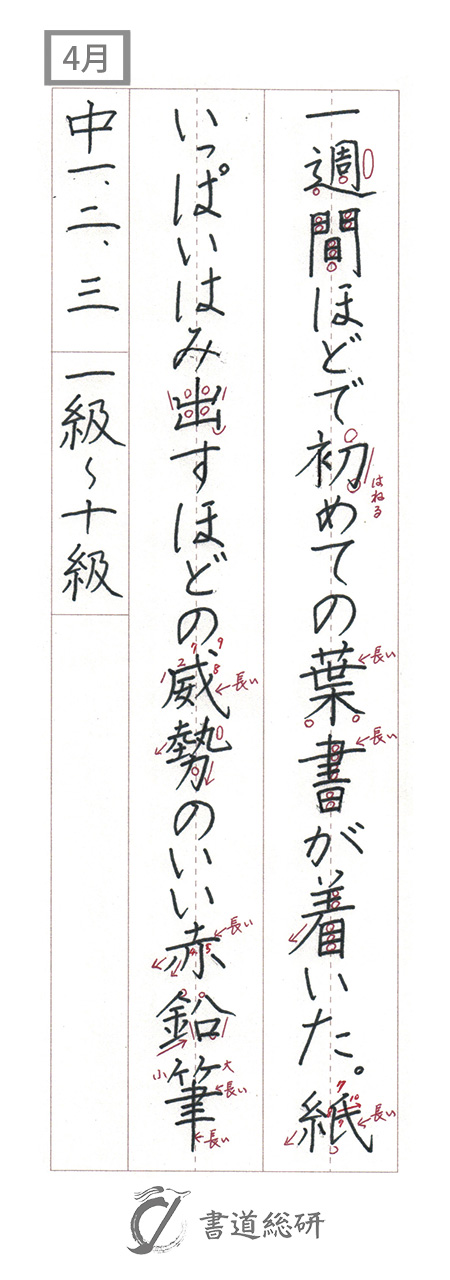 4月
一週間ほどで初めての葉書が着いた。紙
いっぱいはみ出すほどの威勢のいい赤鉛筆
中一、二、三 一級〜十級
はねる
長い
長い
長い
長い
長い
長い
小
大
長い
長い
1 2 7 9 8
4 5
7 10 8 9
書道総研